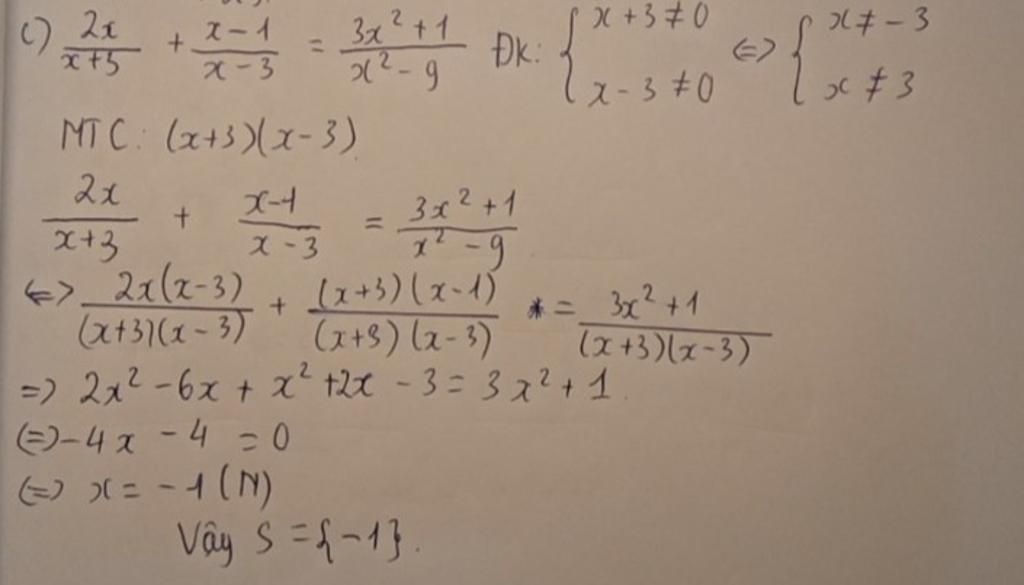 c) \frac{2x}{x+3} + \frac{x-1}{x-3} = \frac{3x^2+1}{x^2-9} ĐK: \begin{cases} x+3 ≠ 0 \\ x-3 ≠ 0 \end{cases} <=> \begin{cases} x ≠ -3 \\ x ≠ 3 \end{cases}
MTC: (x+3)(x-3)
\frac{2x}{x+3} + \frac{x-1}{x-3} = \frac{3x^2+1}{x^2-9}
<=> \frac{2x(x-3)}{(x+3)(x-3)} + \frac{(x+3)(x-1)}{(x+3)(x-3)} = \frac{3x^2+1}{(x+3)(x-3)}
=> 2x^2 - 6x + x^2 + 2x - 3 = 3x^2 + 1
(=) -4x - 4 = 0
(=) x = -1 (N)
Vậy S = {-1}.